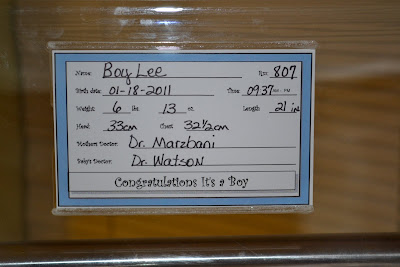 Name: Boy Lee Rm: 807
Birth date: 01-18-2011 Time: 0937 AM - PM
Weight: 6 lbs. 13 oz. Length: 21 in
Head: 33cm Chest: 32½cm
Mother's Doctor: Dr. Marzbani
Baby's Doctor: Dr. Watson
Congratulations It's a Boy